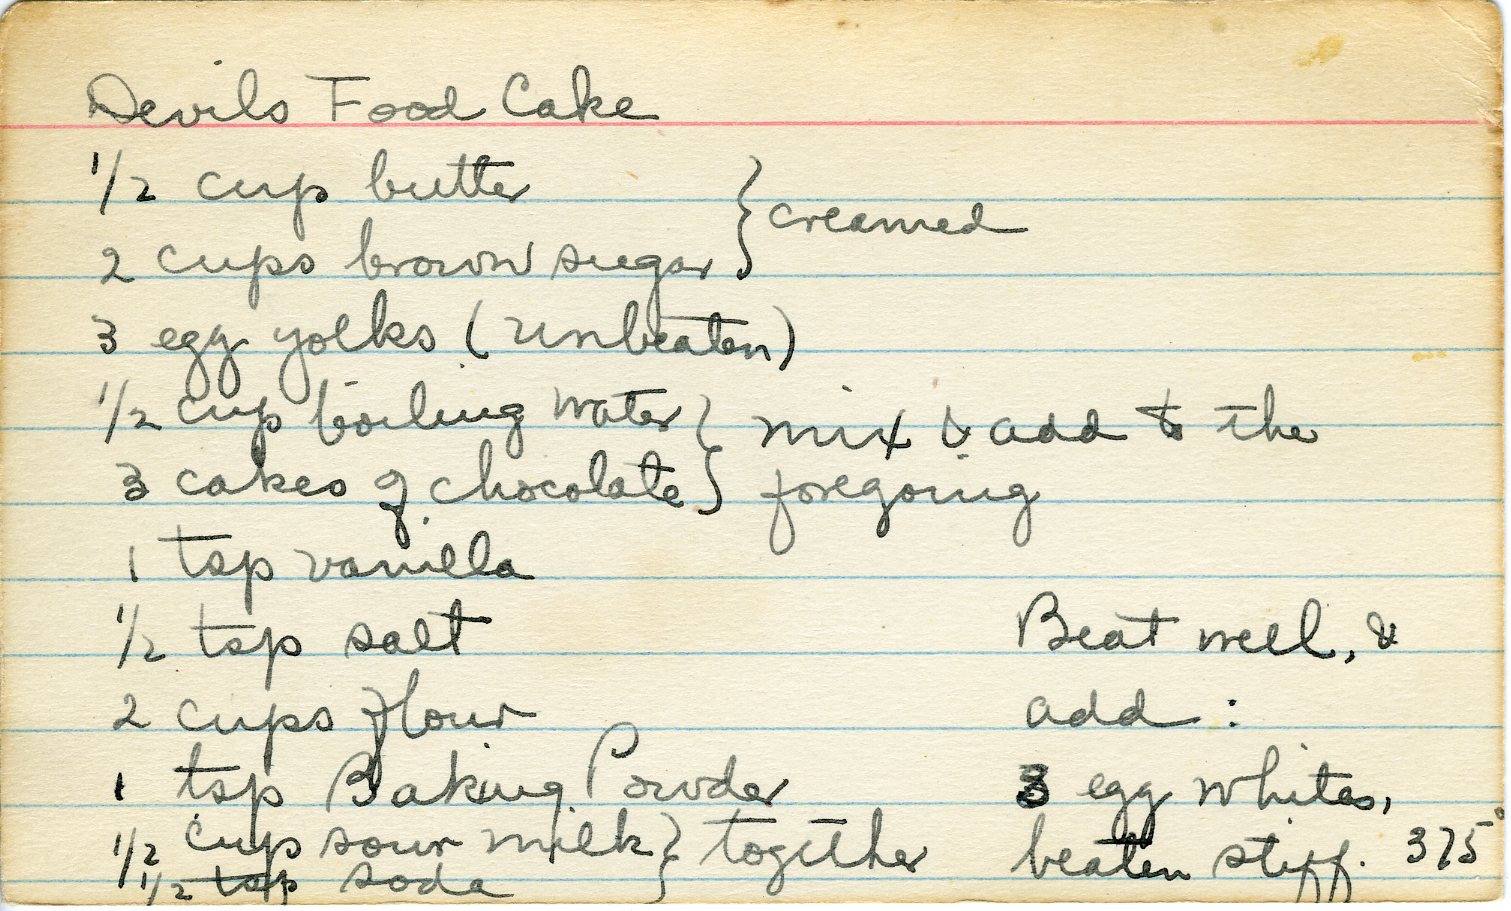 Devils Food Cake
1/2 cup butter
2 cups brown sugar } creamed
3 egg yolks (unbeaten)
1/2 cup boiling water
3 cakes of chocolate } mix & add to the
foregoing
1 tsp vanilla
1/2 tsp salt
2 cups flour
1 tsp Baking Powder
1/2 cup sour milk
1/2 tsp soda } together
Beat well, &
add:
3 egg whites,
beaten stiff. 375°